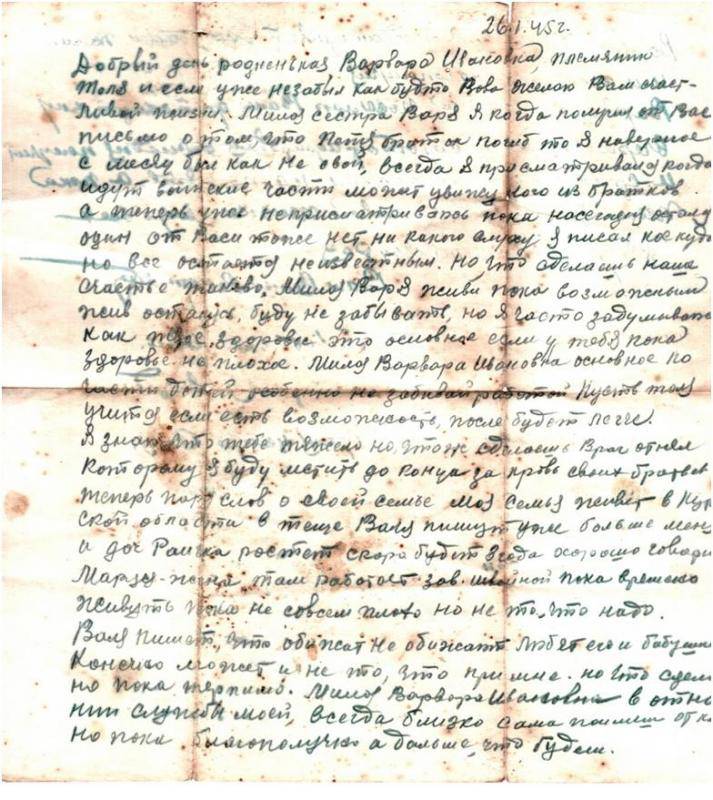 26.1.45г.
Добрый день родненькая Варвара Ивановна, племяник
Толя и если уже незабыл как будто Вова желаю Вам счаст-
ливой жизни. Милая сестра Варя я когда получил от Вас
письмо о том, что Петя браток погиб то я наверное
с месяц был как не свой, всегда я присматриваюсь когда
идут воинские части может увижу кого из братков.
а теперь уже неприсматриваюсь пока насегодня остался
один от Васи тоже нет ни какого слуху я писал кое куда
но все остается неизвестным. Но что сделаешь наше
счастье таково, Милая Варя живи пока возможным
жив останусь, буду не забывать, но я часто задумываюсь
как твое здоровье это основное если у тебя пока
здоровье не плохое. Милая Варвара Ивановна основное по
части детей особенно не забивай работой Пусть толя
учится если есть возможность, после будет легче.
Я знаю что тебе тяжело но, что ж сделаешь Враг отнял
которому я буду мстить до конца за кровь своих братьев
теперь пару слов о своей семье моя семья живет в Кур
ской области в теще Валя пишут уже больше меня
и доч Раичка ростет скора будет 3 года хорошо говори
Маруся-жена там работает зав. швейной пока временно
живуть пока не совсем плохо но не то, что надо.
Валя пишет, что обижат не обижают любят его и бабушка
Конечно может и не то, что при мне. но что сдела
но пока терпимо. Милая Варвара Ивановна в отно
нии службы моей, всегда близко сама поимеш от к
но пока благополучно а дальше, что будет.